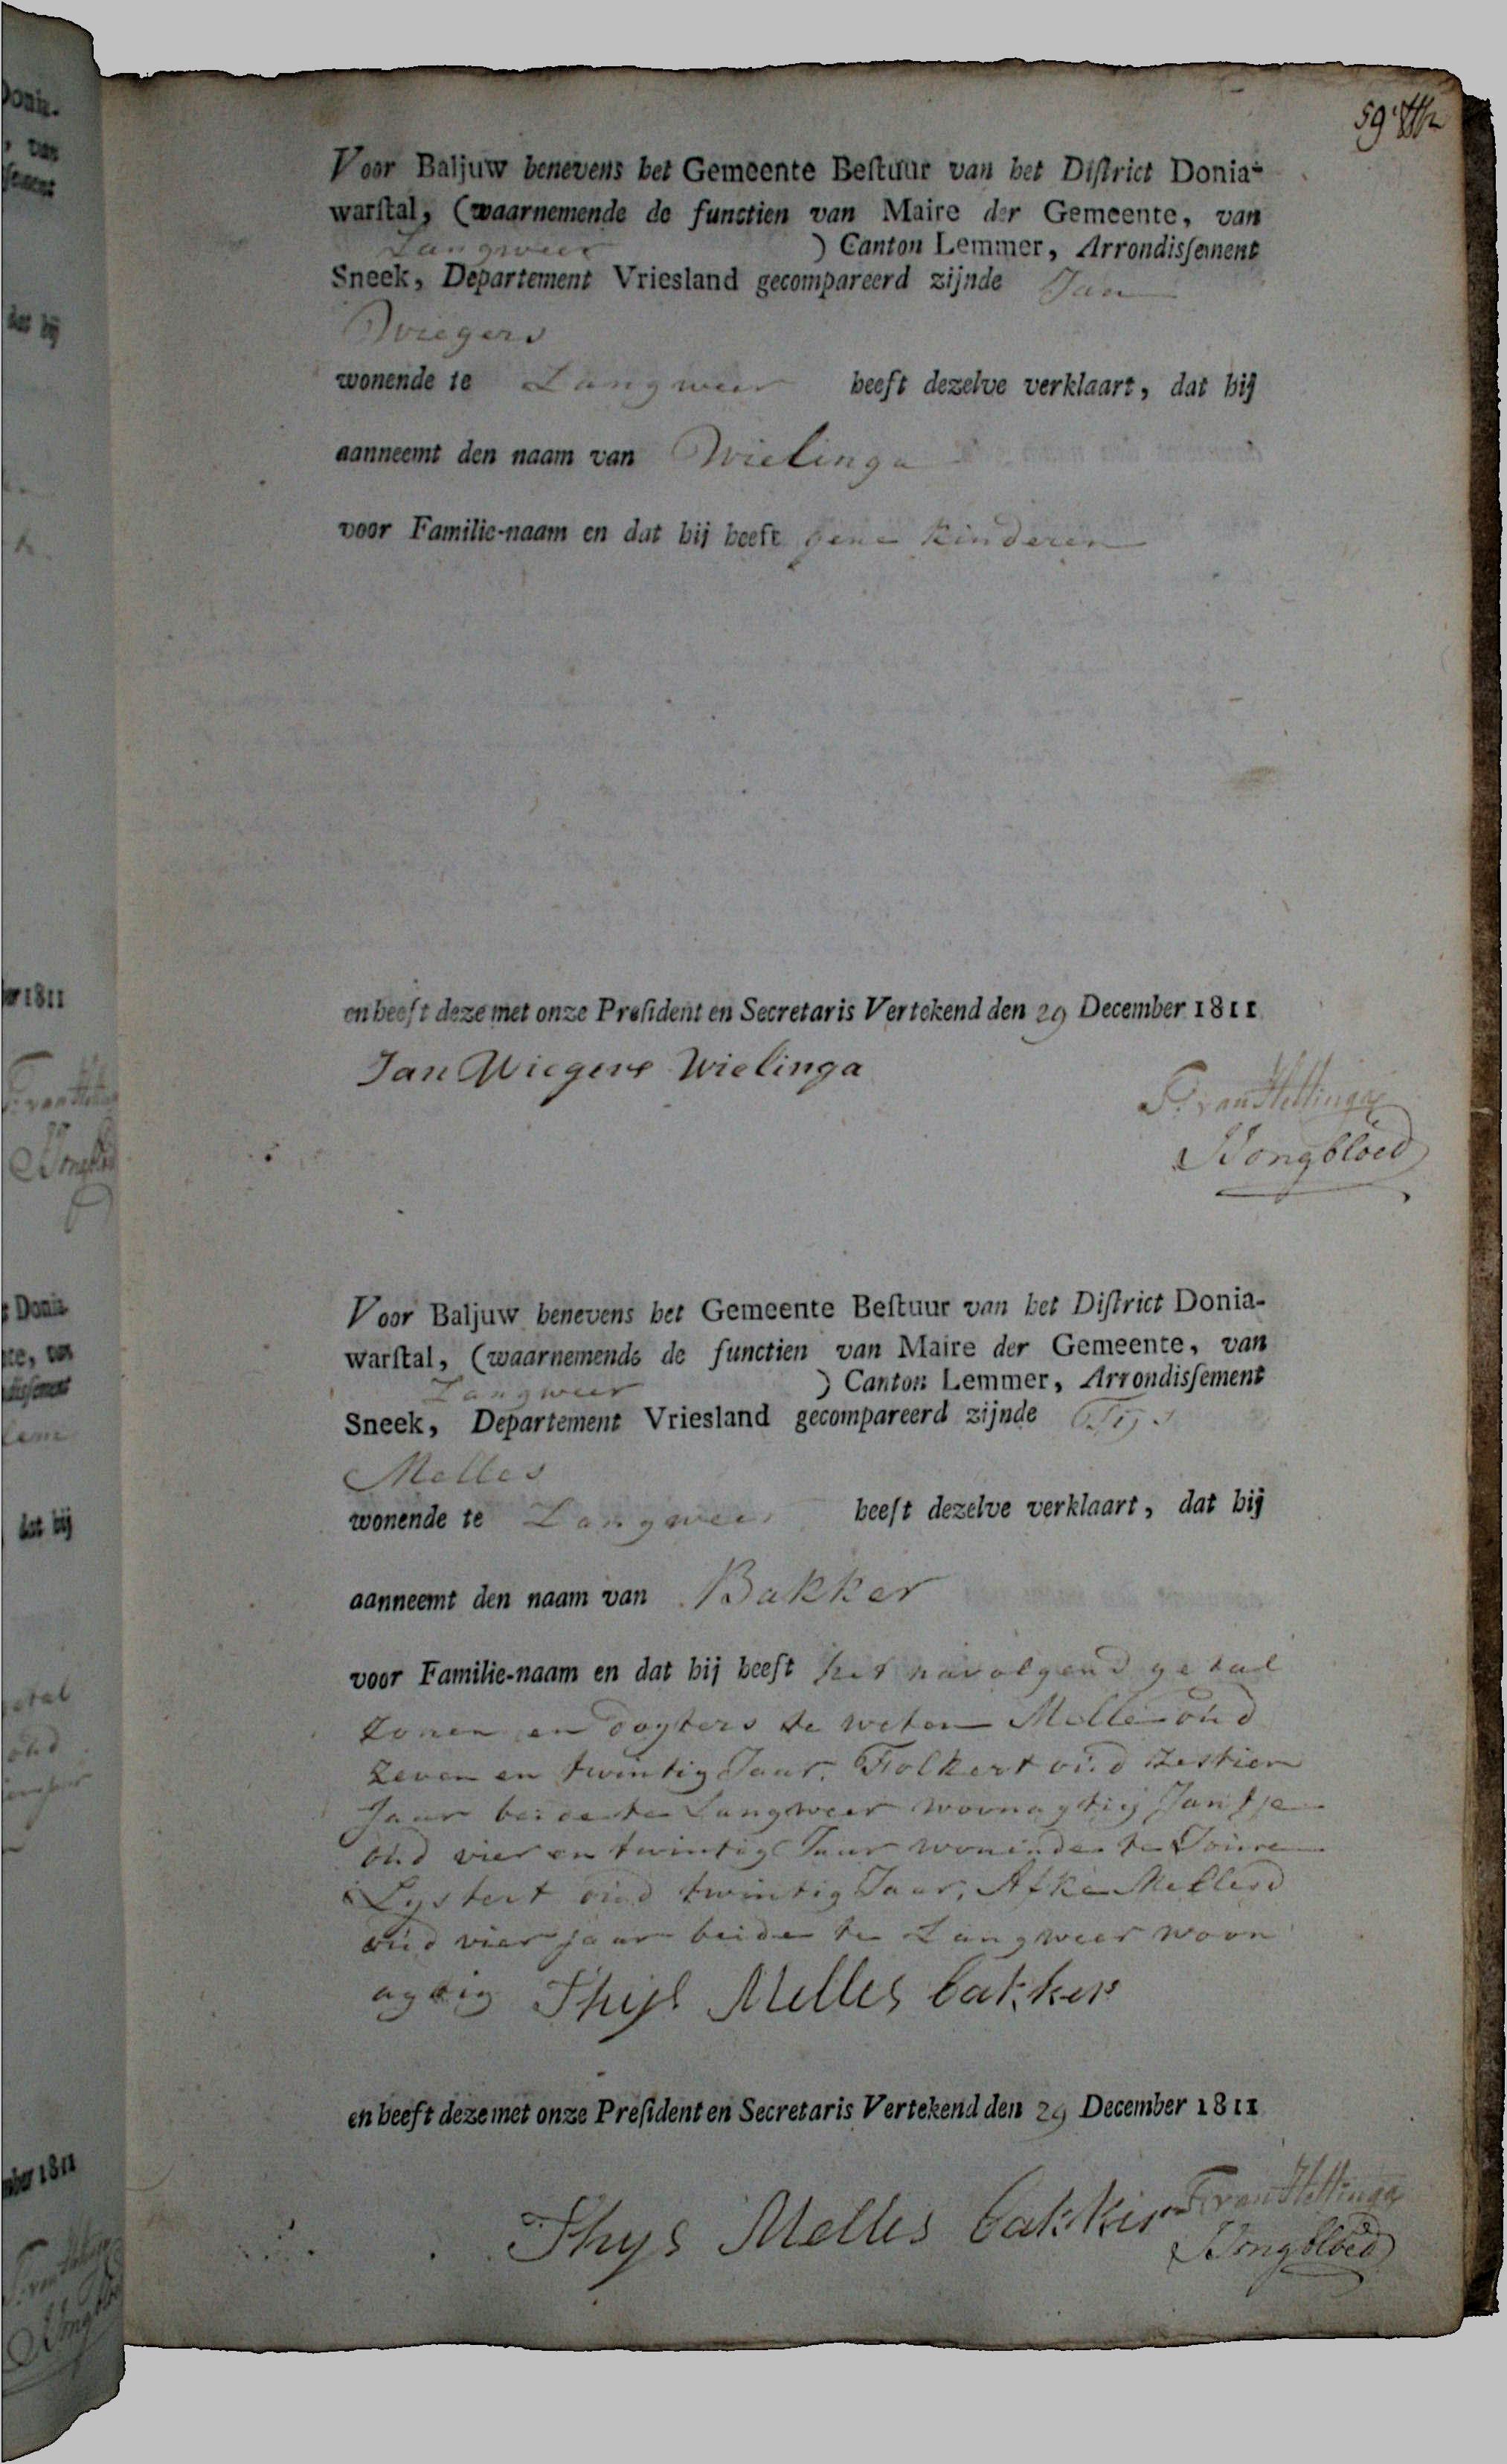 59
Voor Baljuw benevens het Gemeente Beſtuur van het Diſtrict Donia-
warſtal, (waarnemende de functien van Maire der Gemeente, van
Langweer ) Canton Lemmer, Arrondisſement
Sneek, Departement Vriesland gecompareerd zijnde Jan
Wiegers
wonende te Langweer heeft dezelve verklaart, dat hij
aanneemt den naam van Wielinga
voor Familie-naam en dat hij heeft gene kinderen
en heeft deze met onze Preſident en Secretaris Vertekend den 29 December 1811
Jan Wiegers Wielinga
F. van Hettinga
Jongbloed
Voor Baljuw benevens het Gemeente Beſtuur van het Diſtrict Donia-
warſtal, (waarnemende de functien van Maire der Gemeente, van
Langweer ) Canton Lemmer, Arrondisſement
Sneek, Departement Vriesland gecompareerd zijnde Tijs
Melles
wonende te Langweer heeft dezelve verklaart, dat hij
aanneemt den naam van Bakker
voor Familie-naam en dat hij heeft het navolgend getal
zonen en dogters te weten Melle oud
zeven en twintig Jaar, Folkert oud zestien
Jaar beide te Langweer woonagtig Jantje
oud vier en twintig Jaar wonende te Joure
Lystert oud twintig Jaar, Afke
oud vier jaar beide te Langweer woon
agtig Thijs Melles bakker
en heeft deze met onze Preſident en Secretaris Vertekend den 29 December 1811
Thys Melles bakker
F. van Hettinga
Jongbloed